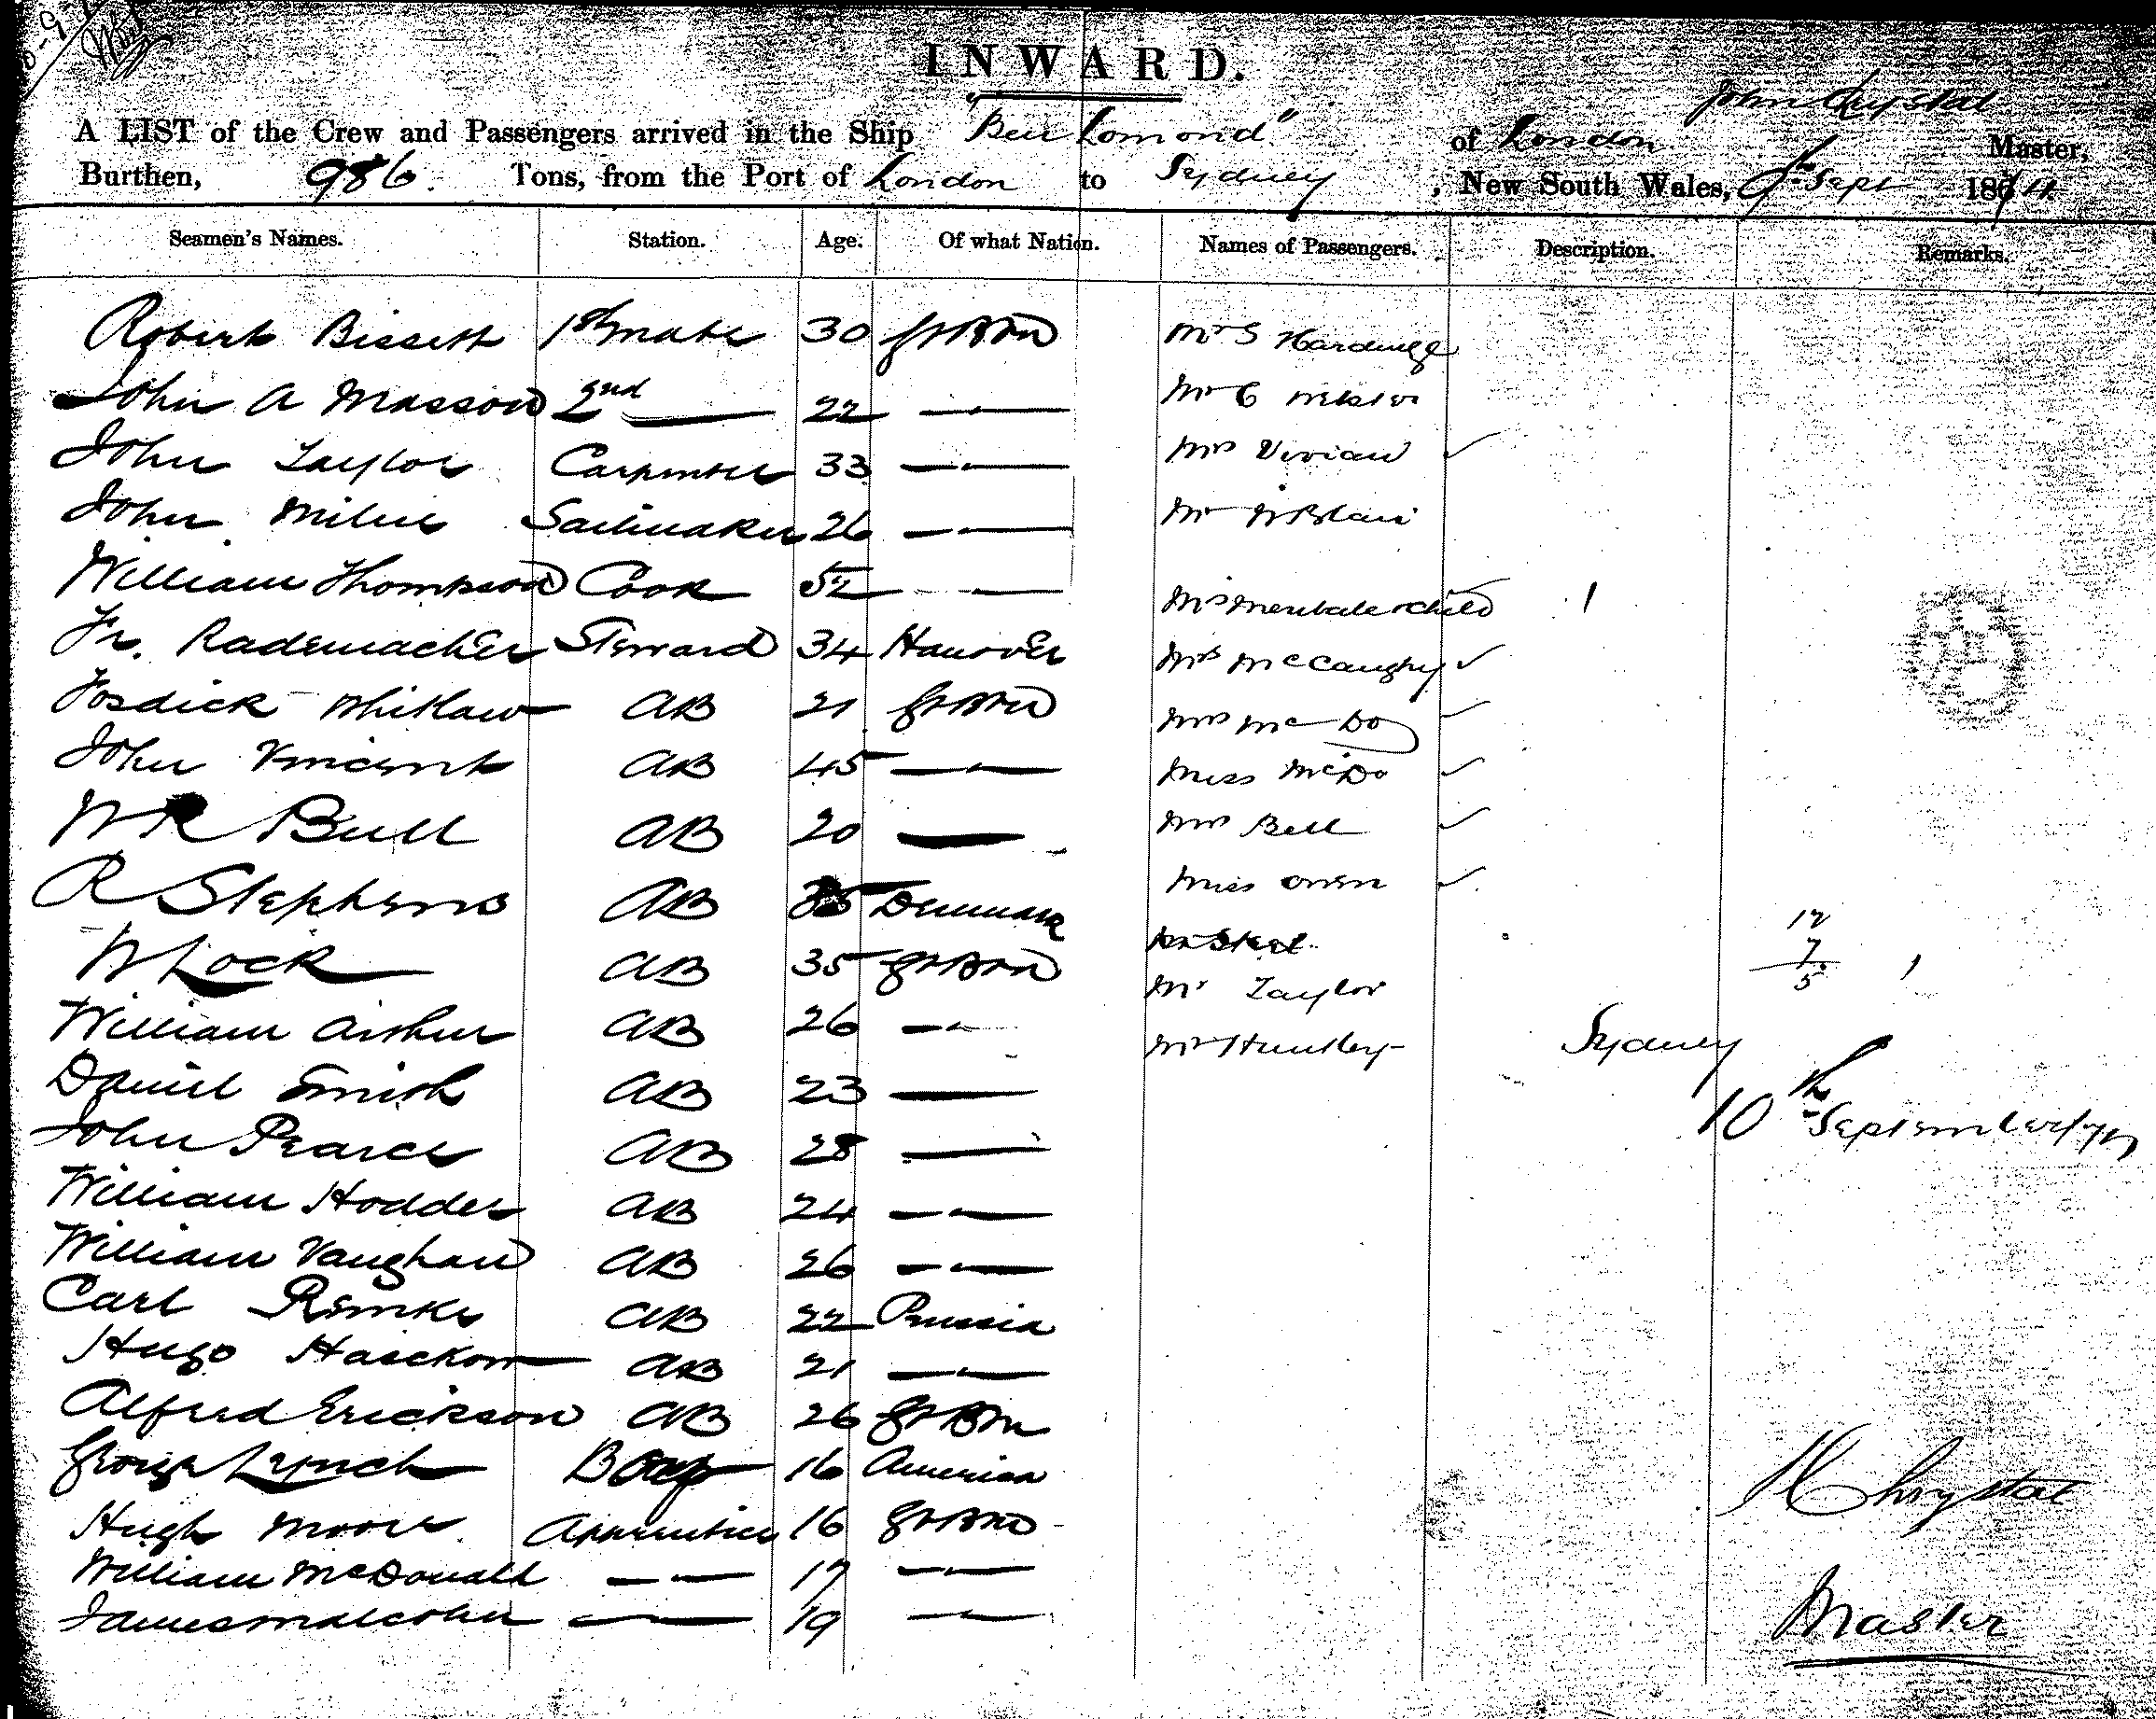 INWARD.
John Chrystal
A LIST of the Crew and Passengers arrived in the Ship "Ben Lomond" of London Master,
Burthen, 986 Tons, from the Port of London to Sydney, New South Wales, 9th Sept 1874
Seamen's Names. Station. Age. Of what Nation. Names of Passengers. Description. Remarks.
Robert Bissett 1st mate 30 Gt Btn Mr S Hardinge
John A Masson 2nd — 22 — Mr C Webster
John Taylor Carpenter 33 — Mrs Vivian ✓
John Milne Sailmaker 26 — Mr W Blair
William Thompson Cook 52 — Child 1
Fr. Rademacher Steward 34 Hanover Mr McCaughy ✓
Fosdick Whitlaw AB 21 Gt Btn Mrs Mc Do ✓
John Vincent AB 45 — Miss McDo ✓
W R Bull AB 20 — Mrs Bell ✓
R Stephens AB 35 Denmark Miss Owen ✓
W Lock AB 35 Gt Btn
12
7
5
Mr Taylor
William Arthur AB 26 — Mr Huntley Sydney
Daniel Smith AB 23 —
10th September
John Pearce AB 28 —
William Hodder AB 24 —
William Vaughan AB 26 —
Carl Remke AB 22 Prussia
Hugo Hasckow AB 21 —
Alfred Erickson AB 26 Gt Btn
George Lynch Boy 16 American
J Chrystal
Hugh Moore Apprentice 16 Gt Btn
William McDonald — 17 —
James Malcolm — 19 —
Master